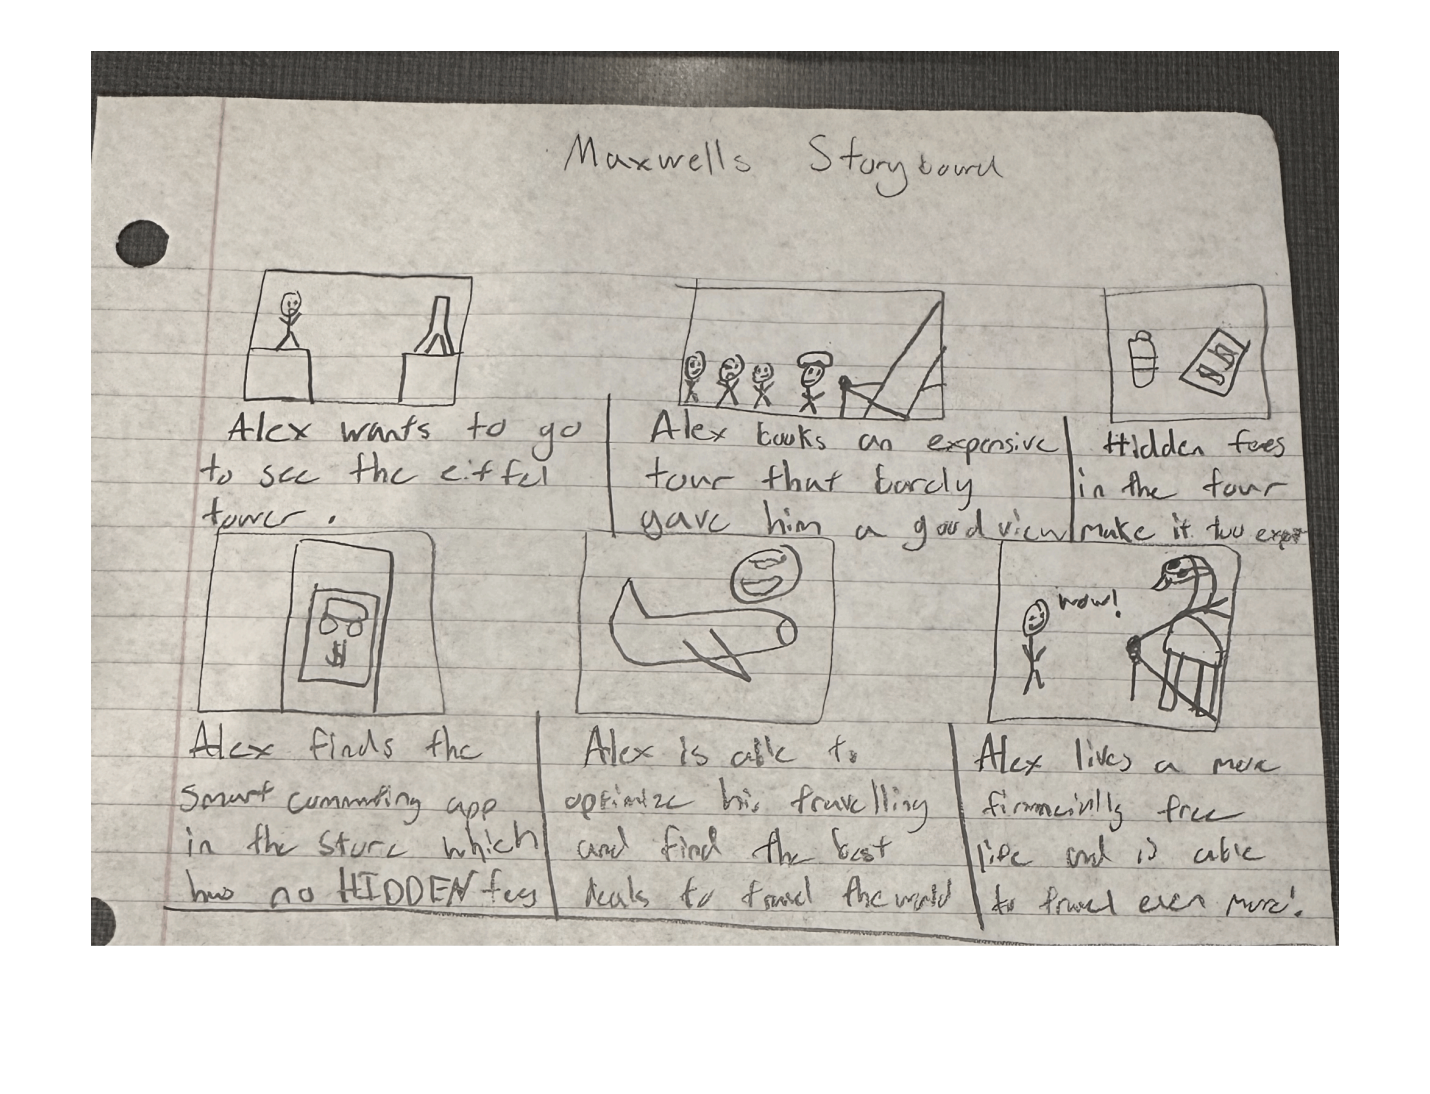 Maxwells Storyboard
Alex wants to go
to see the eiffel
tower.
Alex books an expensive
tour that barely
gave him a good view
Hidden fees
in the tour
make it too
wow!
$
Alex finds the
smart commuting app
in the store which
has no HIDDEN fees
Alex is able to
optimize his travelling
and find the best
deals to travel the world
Alex lives a more
financially free
life and is able
to travel even more!